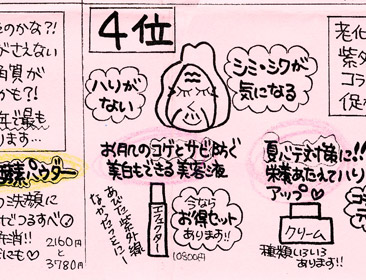 のかな?!
がさえない
角質が
かも?!
年で最も
ります…
酵素パウダー
の洗顔に
ぜつるすべ
先背!!
にも♡
2160円
と
3780円
4位
ハリが
ない
シミ・シワが
気になる
お肌のコゲとサビ防ぐ
美白もできる美容液
あびた紫外線
なかったことに!
デスクター
今なら
お得セット
あります!!
(10800円)
老化
紫タ
コラ
促
夏バテ対策に!!
栄養あたえてハリ
アップ♡
クリーム
種類いろいろ
あります!!